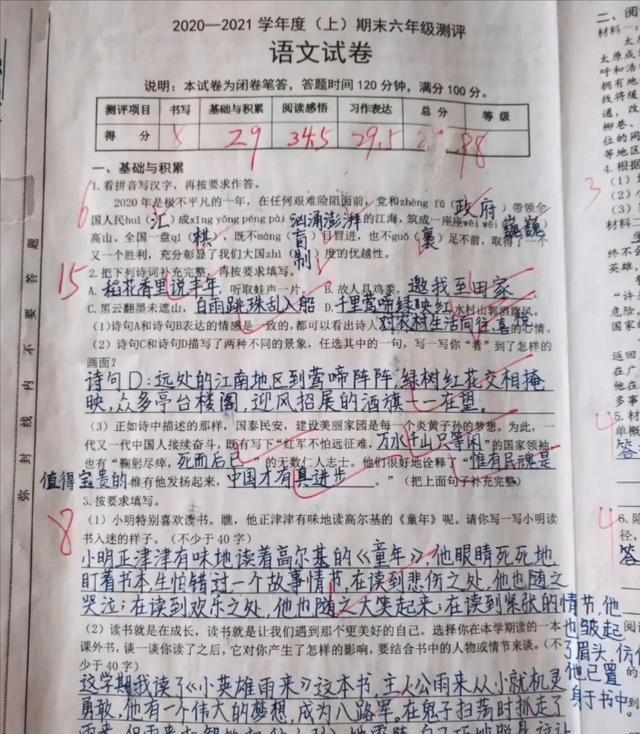 2020—2021 学年度（上）期末六年级测评
语文试卷
说明：本试卷为闭卷笔答，答题时间 120 分钟，满分 100 分。
测评项目 书写 基础与积累 阅读感悟 习作表达 总 分 等 级
得 分 29 34.5 29.5 98
一、基础与积累
1.看拼音写汉字，再按要求作答。
2020 年是极不平凡的一年，在任何艰难险阻面前，党和zhèng fǔ（政府）带领全
国人民huì（汇）成xiōng yǒng péng pài 汹涌澎湃的江海，筑成一座座wēi wēi 巍巍
高山。全国一盘qí（棋），既不máng（盲）目冒进，也不guǒ（裹）足不前，取得了一个
又一个胜利，充分彰显了我们大国zhì（制）度的优越性。
6
2.把下列诗词补充完整，再按要求填写。
15
A.稻花香里说丰年，听取蛙声一片。 B.故人具鸡黍，邀我至田家
C.黑云翻墨未遮山，白雨跳珠乱入船 D.千里莺啼绿映红，水村山郭酒旗风。
(1)诗句A和诗句B表达的情感是一致的，都可以看出诗人对农村生活向往、喜悦的心情。
(2) 诗句C和诗句D描写了两种不同的景象，任选其中的一句，写一写你“看”到了怎样的
画面？
诗句D：远处的江南地区到莺啼阵阵，绿树红花交相掩
映，众多亭台楼阁，迎风招展的酒旗一一在望。
（3）正如诗中描述的那样，国泰民安，建设美丽家园是每一个炎黄子孙的梦想。为此，一
代又一代中国人接续奋斗，既有写下“红军不怕远征难，万水千山只等闲”的国家领袖，
也有“鞠躬尽瘁，死而后已”的无数仁人志士。他们很好地诠释了“惟有民魂是
值得宝贵的 惟有他发扬起来，中国才有真进步。”（把上面句子补充完整）
3.按要求填写。
8
（1）小明特别喜欢读书。瞧，他正津津有味地读高尔基的《童年》呢。请你写一写小明读
书入迷的样子。（不少于 40 字）
小明正津津有味地读着高尔基的《童年》，他眼睛死死地
盯着书本，生怕错过一个故事情节，在读到悲伤之处，他也随之
哭泣；在读到欢乐之处，他也随之大笑起来；在读到紧张的情节，他
也皱起
了眉头，仿佛
他已置
身于书中
（2）读书就是在成长，读书就是让我们遇到那个更美好的自己。选择你在本学期读的一本
课外书，谈一谈你读了之后，它对你产生了怎样的影响，要结合书中的人物或情节来谈。（不
少于 40 字）
这学期我读了《小英雄雨来》这本书，主人公雨来从小就机灵
勇敢，他有一个伟大的梦想，成为八路军。在鬼子扫荡时抓走了
弥 封 线 内 不 要 答 题
二、阅
材料一：
3
4
4